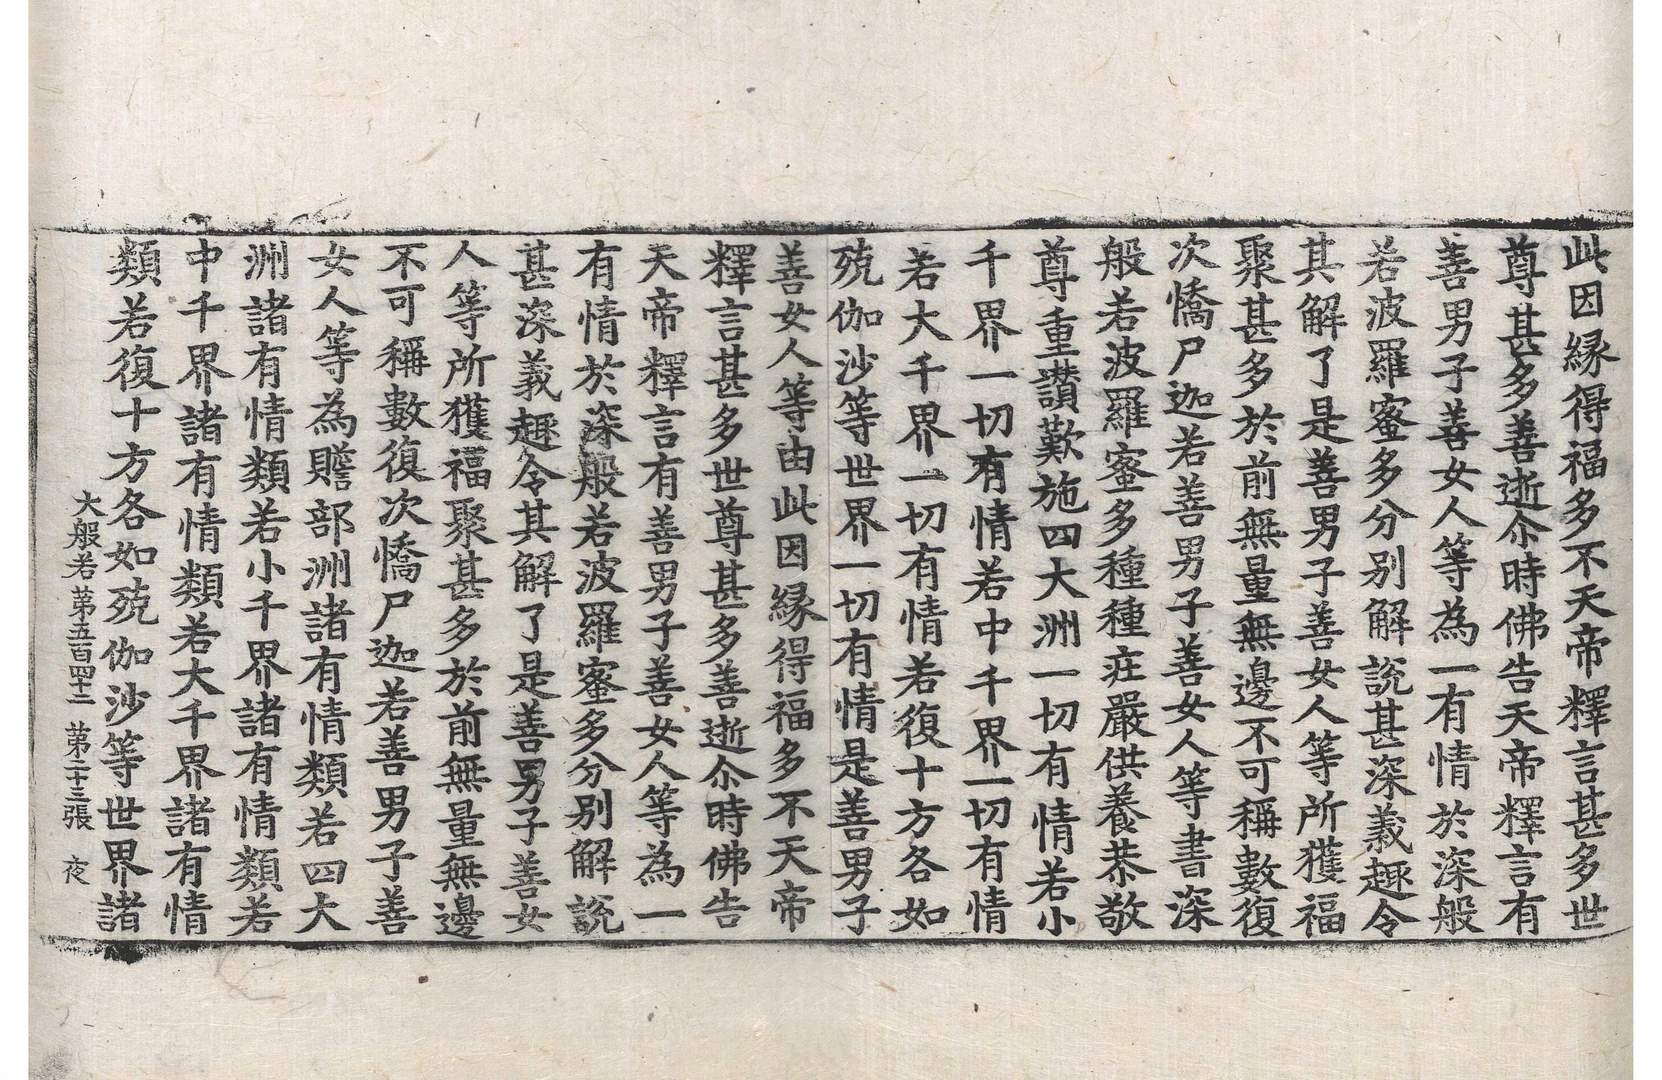 此因縁得福多不天帝釋言甚多世
尊甚多善逝尒時佛告天帝釋言有
善男子善女人等為一有情於深般
若波羅蜜多分别解說甚深義趣令
其解了是善男子善女人等所獲福
聚甚多於前無量無邊不可稱數復
次憍尸迦若善男子善女人等書深
般若波羅蜜多種種㽵嚴供養恭敬
尊重讃歎施四大洲一切有情若小
千界一切有情若中千界一切有情
若大千界一切有情若復十方各如
殑伽沙等世界一切有情是善男子
善女人等由此因縁得福多不天帝
釋言甚多世尊甚多善逝尒時佛告
天帝釋言有善男子善女人等為一
有情於深般若波羅蜜多分别解說
甚深義趣令其解了是善男子善女
人等所獲福聚甚多於前無量無邊
不可稱數復次憍尸迦若善男子善
女人等為贍部洲諸有情類若四大
洲諸有情類若小千界諸有情類若
中千界諸有情類若大千界諸有情
類若復十方各如殑伽沙等世界諸
大般若 苐五百四十二 苐二十三張 夜